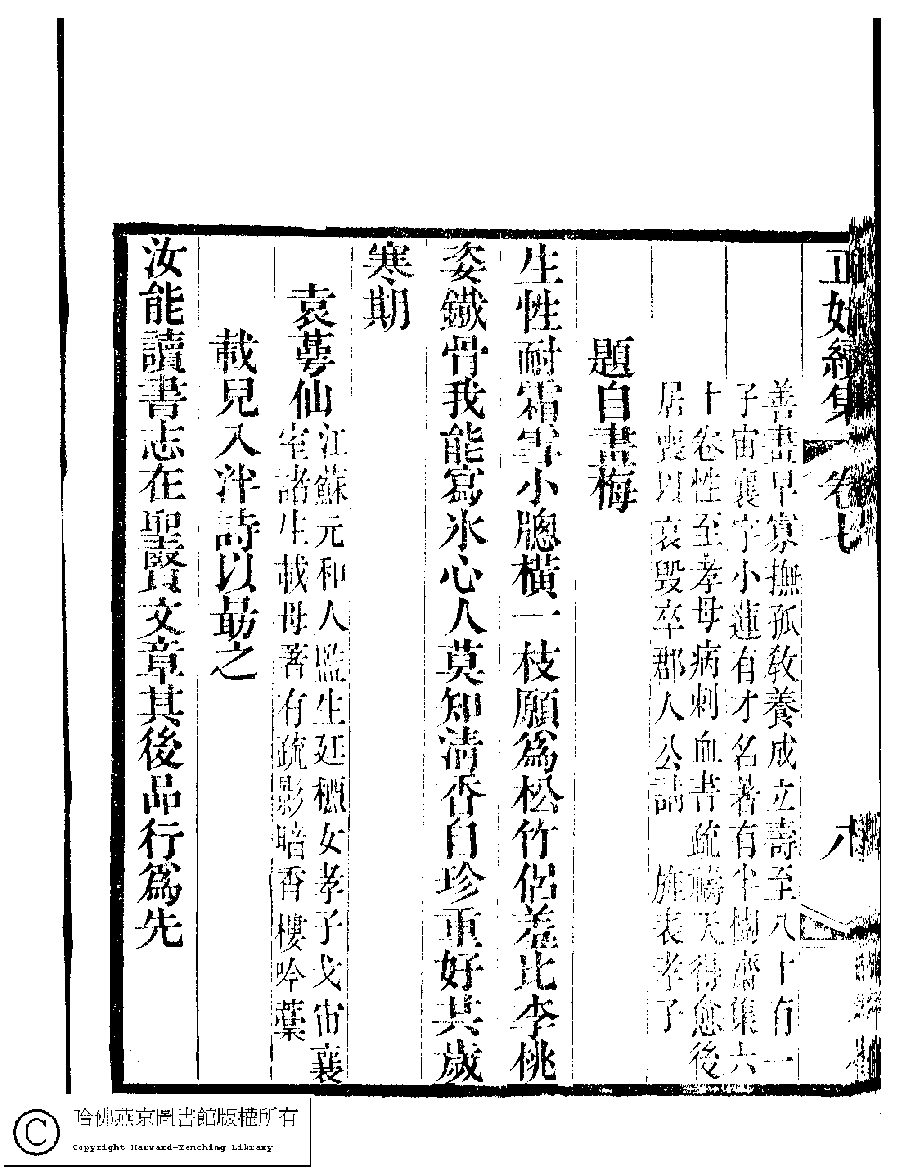 正始續集 卷七 八
善畫早寡撫孤敎養成立壽至八十有一
子宙襄字小蓮有才名著有半樹齋集六
十卷性至孝母病刺血書疏禱天得愈後
居喪以哀毀卒郡人公請 旌表孝子
題自畫梅
生性耐霜雪小牕橫一枝願爲松竹侶羞比李桃
姿鐵骨我能寫氷心人莫知淸香自珍重好共歲
寒期
袁蕚仙
江蘇元和人監生廷櫃女孝子戈宙襄
室諸生載母著有疏影暗香樓吟葉
載兒入泮詩以勗之
汝能讀書志在聖賢文章其後品行爲先
哈佛燕京圖書館版權所有
Copyright Harvard-Yenching Library